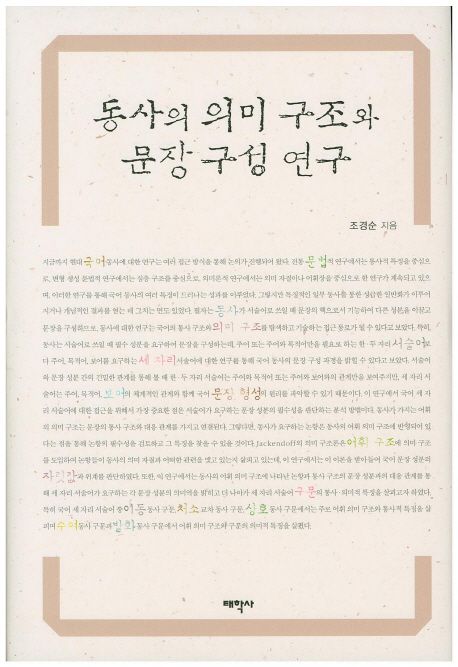 동사의 의미 구조와
문장 구성 연구
조경순 지음
지금까지 현대 국어 동사에 대한 연구는 여러 접근 방식을 통해 논의가 진행되어 왔다. 전통 문법적 연구에서는 통사적 특징을 중심으
로, 변형 생성 문법적 연구에서는 심층 구조를 중심으로, 의미론적 연구에서는 의미 자질이나 어휘장을 중심으로 한 연구가 계속되고 있으
며, 이러한 연구를 통해 국어 동사의 여러 특징이 드러나는 성과를 이루었다. 그렇지만 특징적인 일부 동사를 통한 성급한 일반화가 이루어
지거나 개별적인 결과를 얻는 데 그치는 면도 있었다. 필자는 동사가 서술어로 쓰일 때 문장의 핵으로서 기능하여 다른 성분을 아우르고
문장을 구성하므로, 동사에 대한 연구는 국어의 동사 구조와 의미 구조를 탐색하고 기술하는 접근 통로가 될 수 있다고 보았다. 특히,
동사는 서술어로 쓰일 때 필수 성분을 요구하여 문장을 구성하는데, 주어 또는 주어와 목적어만을 필요로 하는 한·두 자리 서술어보
다 주어, 목적어, 보어를 요구하는 세 자리 서술어에 대한 연구를 통해 국어 동사의 문장 구성 과정을 밝힐 수 있다고 보았다. 서술어
와 문장 성분 간의 긴밀한 관계를 통해 볼 때 한·두 자리 서술어는 주어와 목적어 또는 주어와 보어와의 관계만을 보여주지만, 세 자리 서
술어는 주어, 목적어, 보어의 체계적인 관계와 함께 국어 문장 형성의 원리를 파악할 수 있기 때문이다. 이 연구에서 국어 세 자
리 서술어에 대한 접근을 위해서 가장 중요한 점은 서술어가 요구하는 문장 성분의 필수성을 판단하는 분석 방법이다. 동사가 가지는 어휘
의미 구조는 문장의 통사 구조와 대응 관계를 가지고 연결된다. 그렇다면, 동사가 요구하는 논항은 동사의 어휘 의미 구조에 반영되어 있
다는 점을 통해 논항의 필수성을 검토하고 그 특징을 찾을 수 있을 것이다. Jackendoff의 의미 구조론은 어휘 구조에 의미 구조
를 도입하여 논항들이 동사의 의미 자질과 어떠한 관련을 맺고 있는지 살피고 있는데, 이 연구에서는 이 이론을 받아들여 국어 문장 성분의
자릿값과 위계를 판단하였다. 또한, 이 연구에서는 동사의 어휘 의미 구조에 나타난 논항과 통사 구조의 문장 성분과의 대응 관계를 통
해 세 자리 서술어가 요구하는 각 문장 성분의 의미역을 밝히고 더 나아가 세 자리 서술어 구문의 통사·의미적 특징을 살피고자 하였다.
특히 국어 세 자리 서술어 중 이동 동사 구문, 처소 교차 동사 구문, 상호 동사 구문에서는 주로 어휘 의미 구조와 통사적 특징을 살
피며 수여 동사 구문과 발화 동사 구문에서 어휘 의미 구조와 구문의 의미적 특징을 살폈다.
태학사